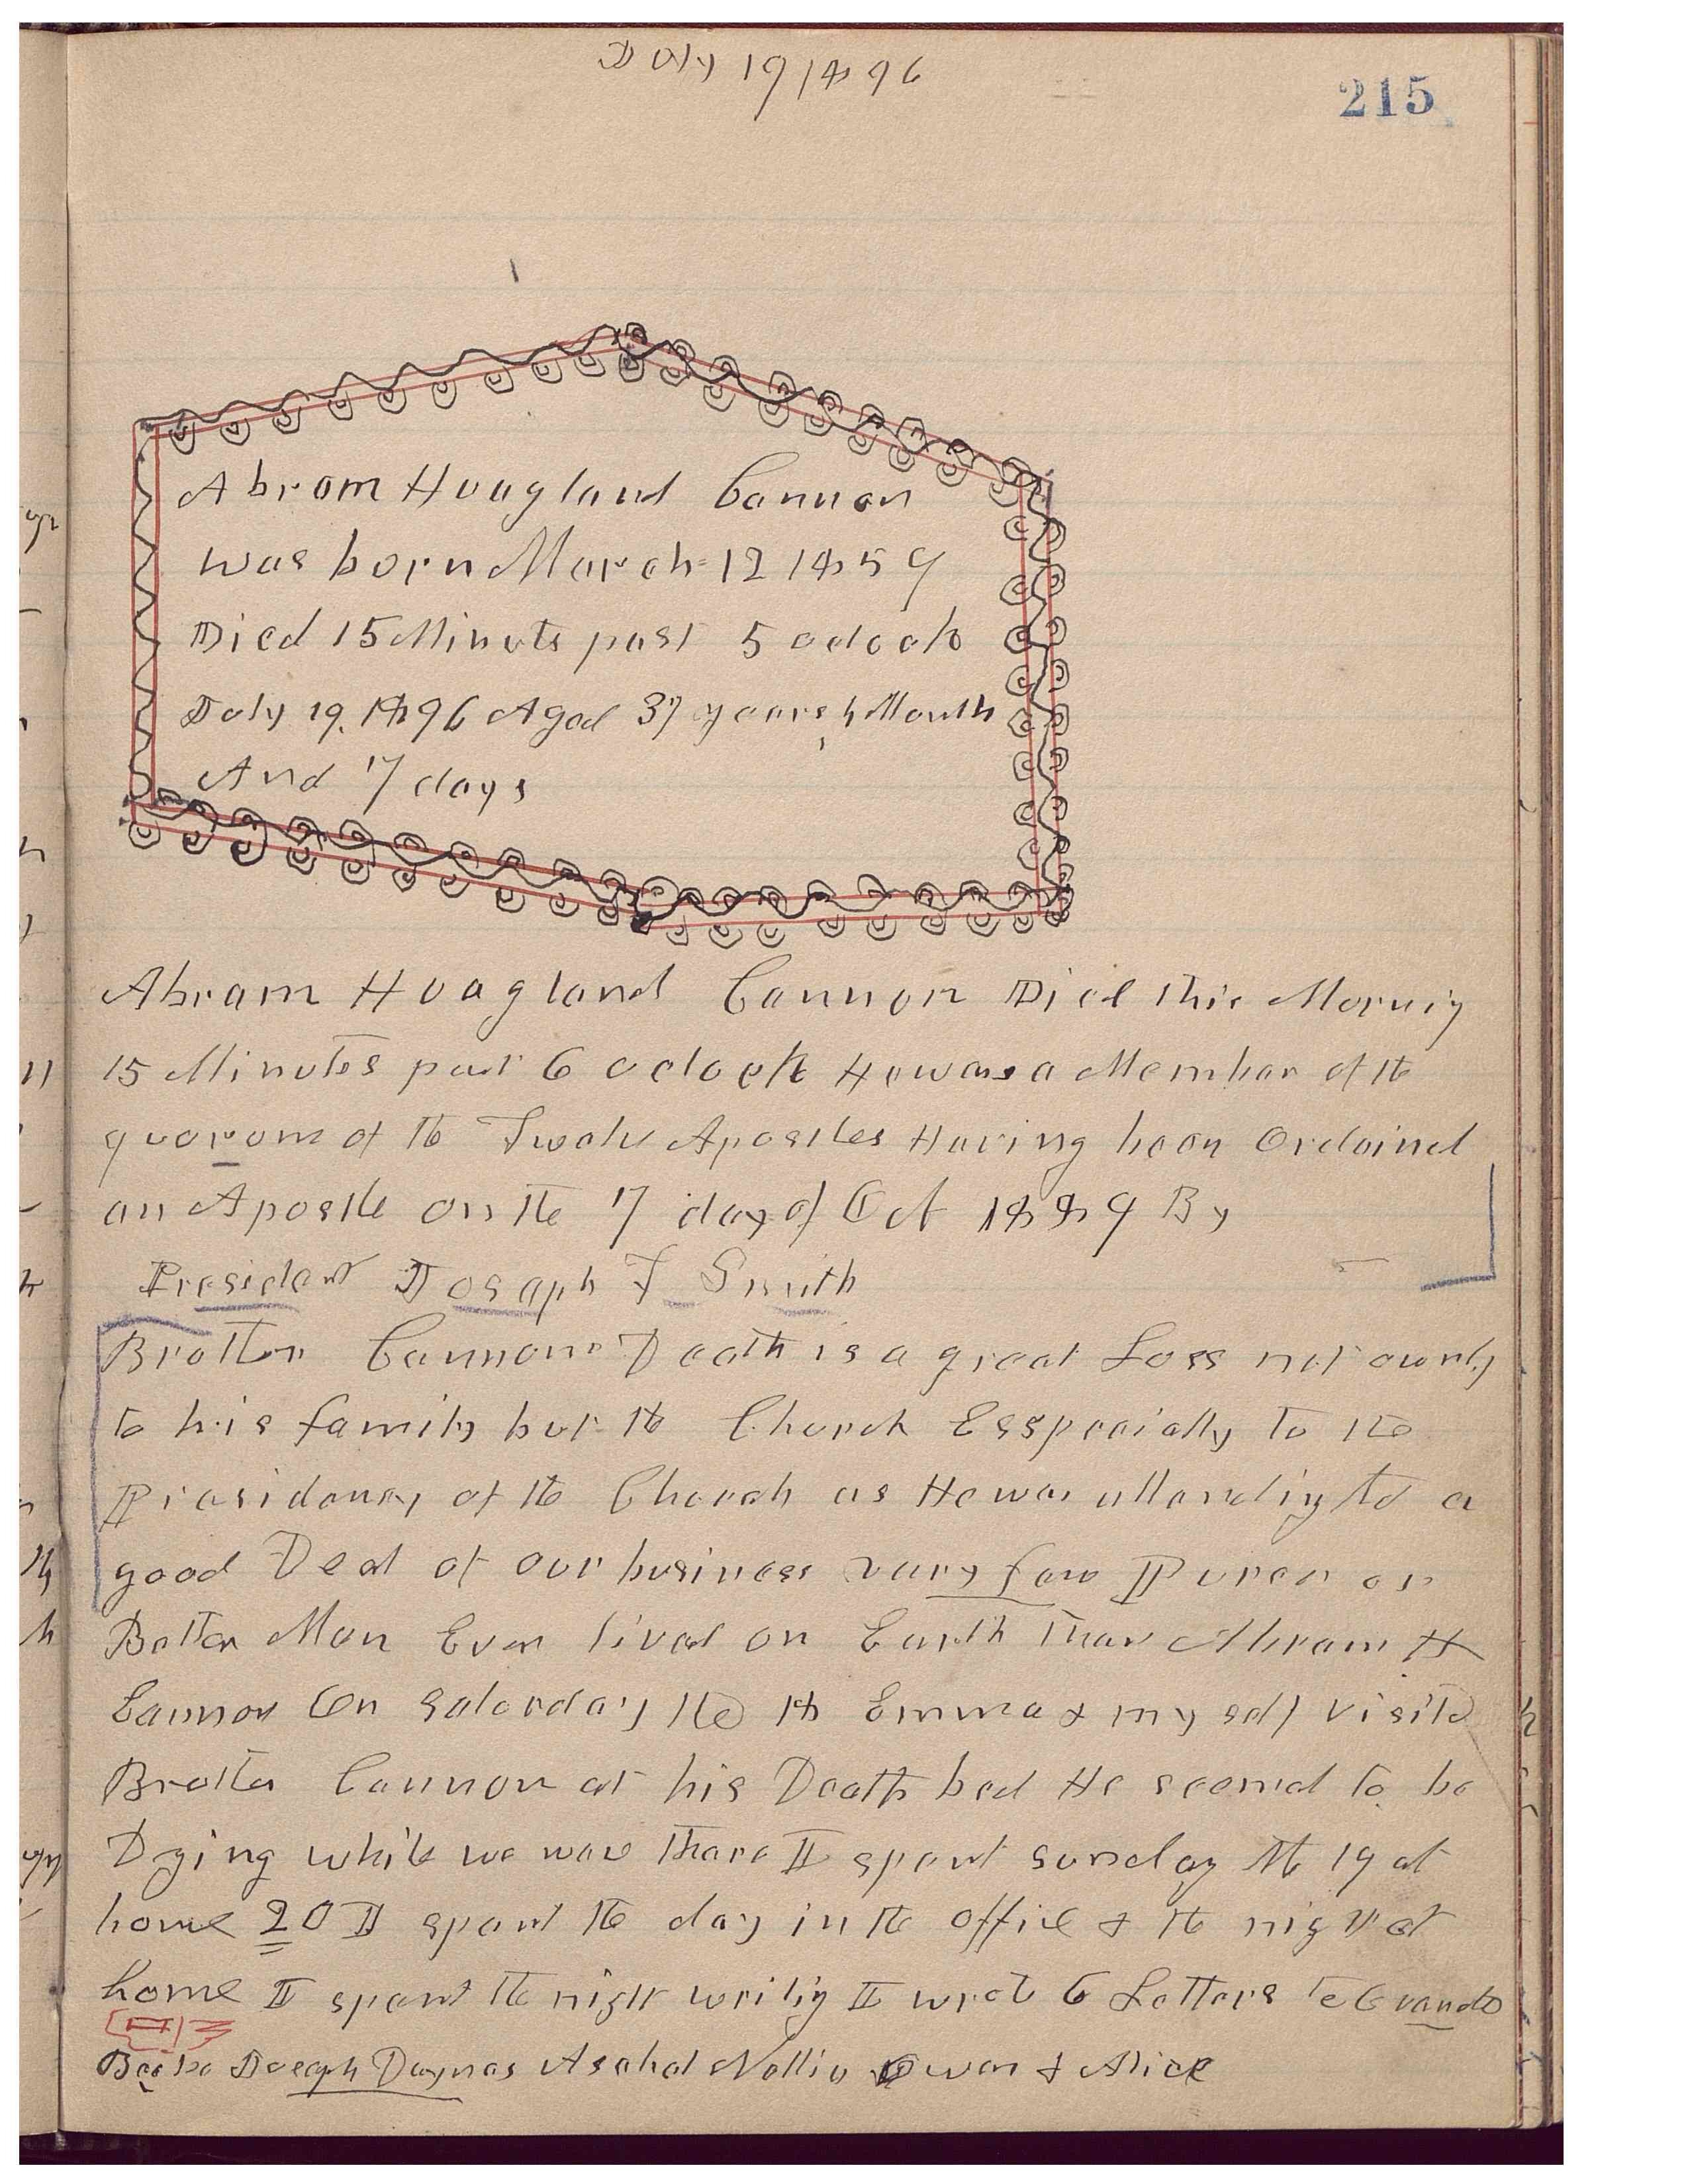 July 19 1896
215
Abram Hoagland Cannon
was born March 12 1859
Died 15 Minuts past 5 oclock
July 19. 1896 Aged 37 years 4 Month
And 7 days
Abram Hoagland Cannon Died this Mornig
15 Minutes past 6 oclock He was a Member of the
quorom of the Twelve Apostles Having been Ordained
an Apostle on the 7 day of Oct 1889 By
President Joseph F Smith
Brother Cannons Death is a great Loss not ownly
to his family but the Church Esspecially to the
Presidency of the Church as He was attendig to a
good Deal of our business very few Purer or
Better Man Ever lived on Earth than Abram H
Cannon On Saturday the 18 Emma & myself visitd
Brother Cannon at his Death bed He seemed to be
Dying while we ware thare I spent sunday the 19 at
home 20 I spent the day in the office & the night at
home I spent the night writig I wrote 6 Letters to
Bebe Joseph Daynes Asahel Nellie Owen & Alice